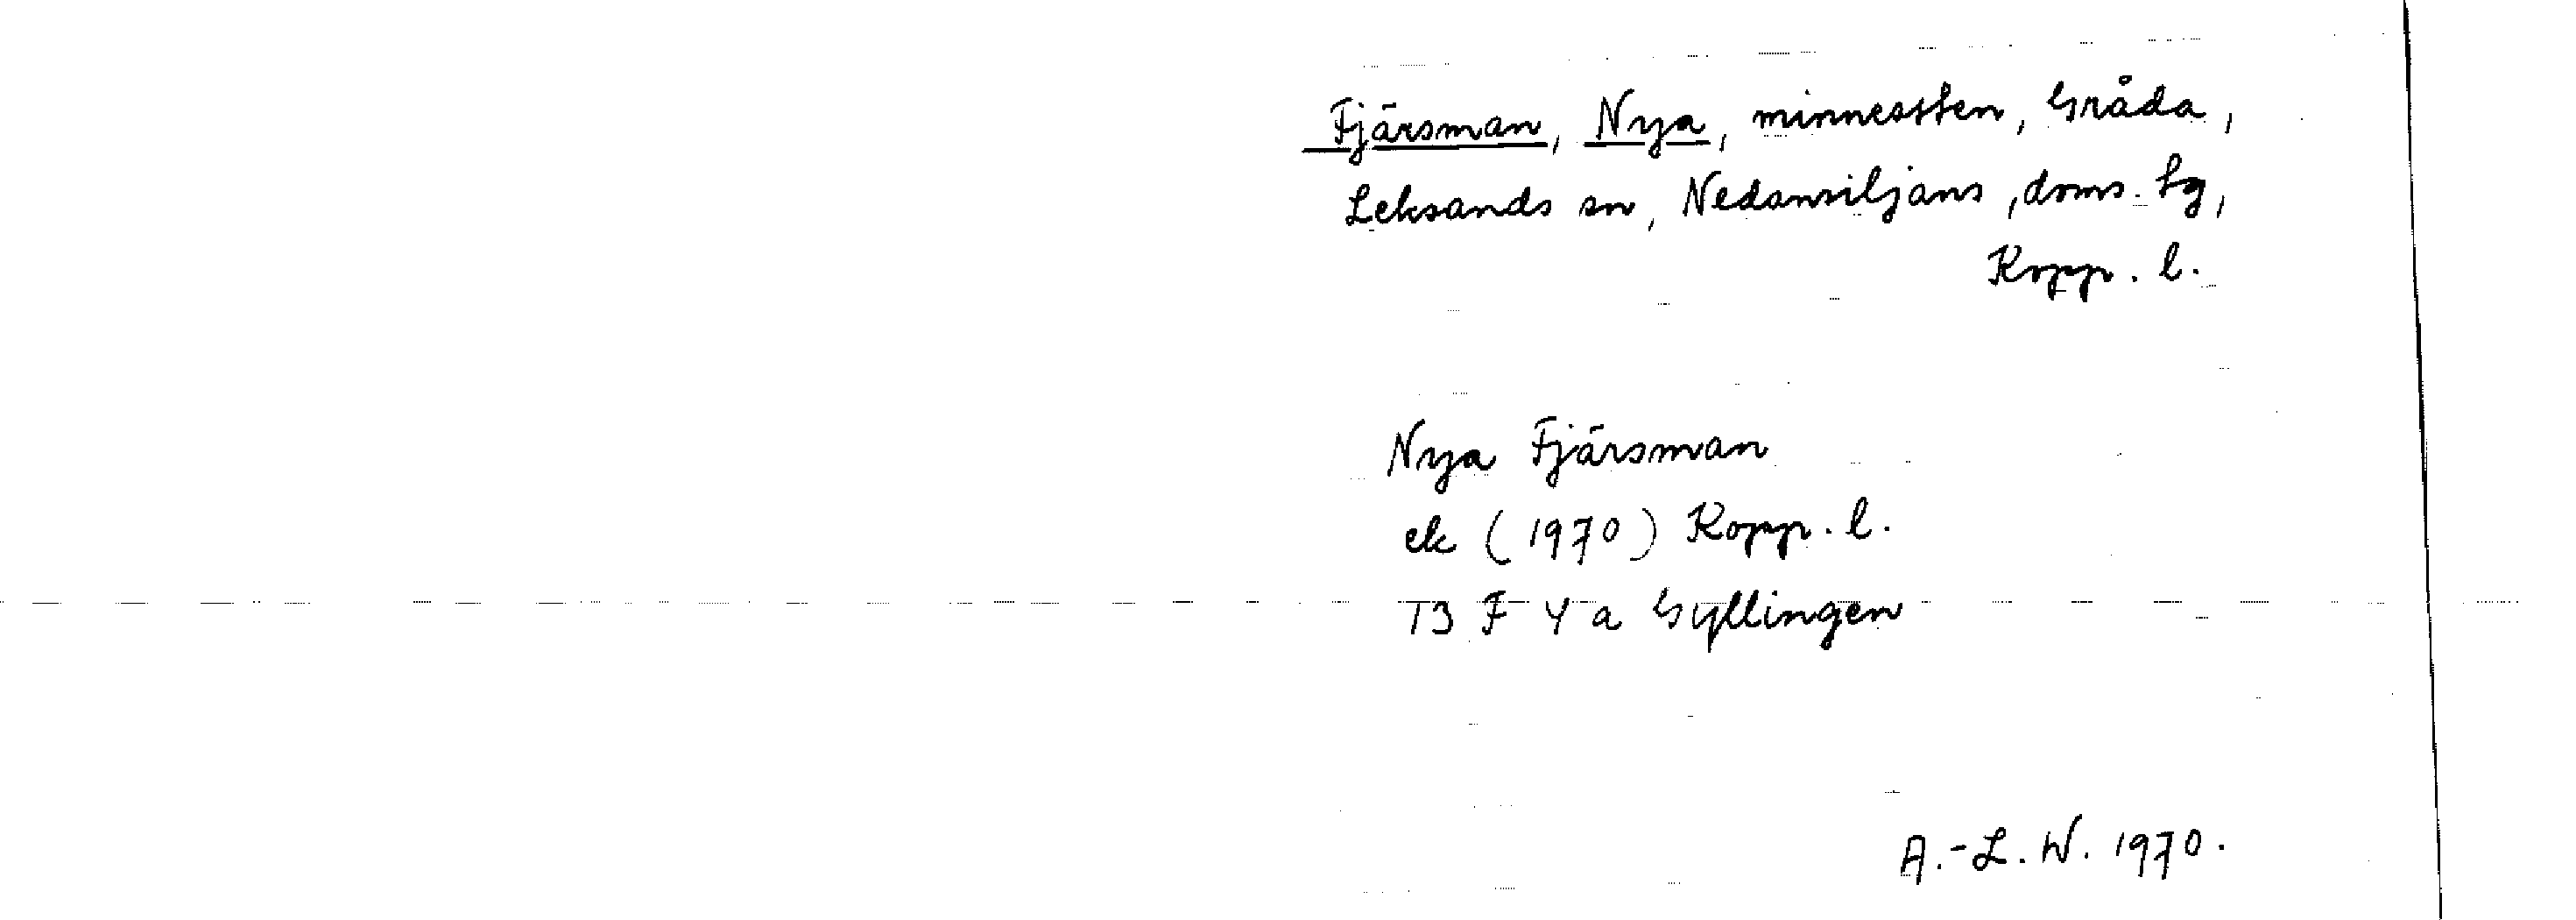 Fjärsman, Nya, minnessten, Gråda,
Leksands sn, Nedansiljans, doms. tg,
Kopp. l.
Nya Fjärsman
ek (1970) Kopp. l.
13 F 4 a Gyllingen
A.-L. W. 1970.